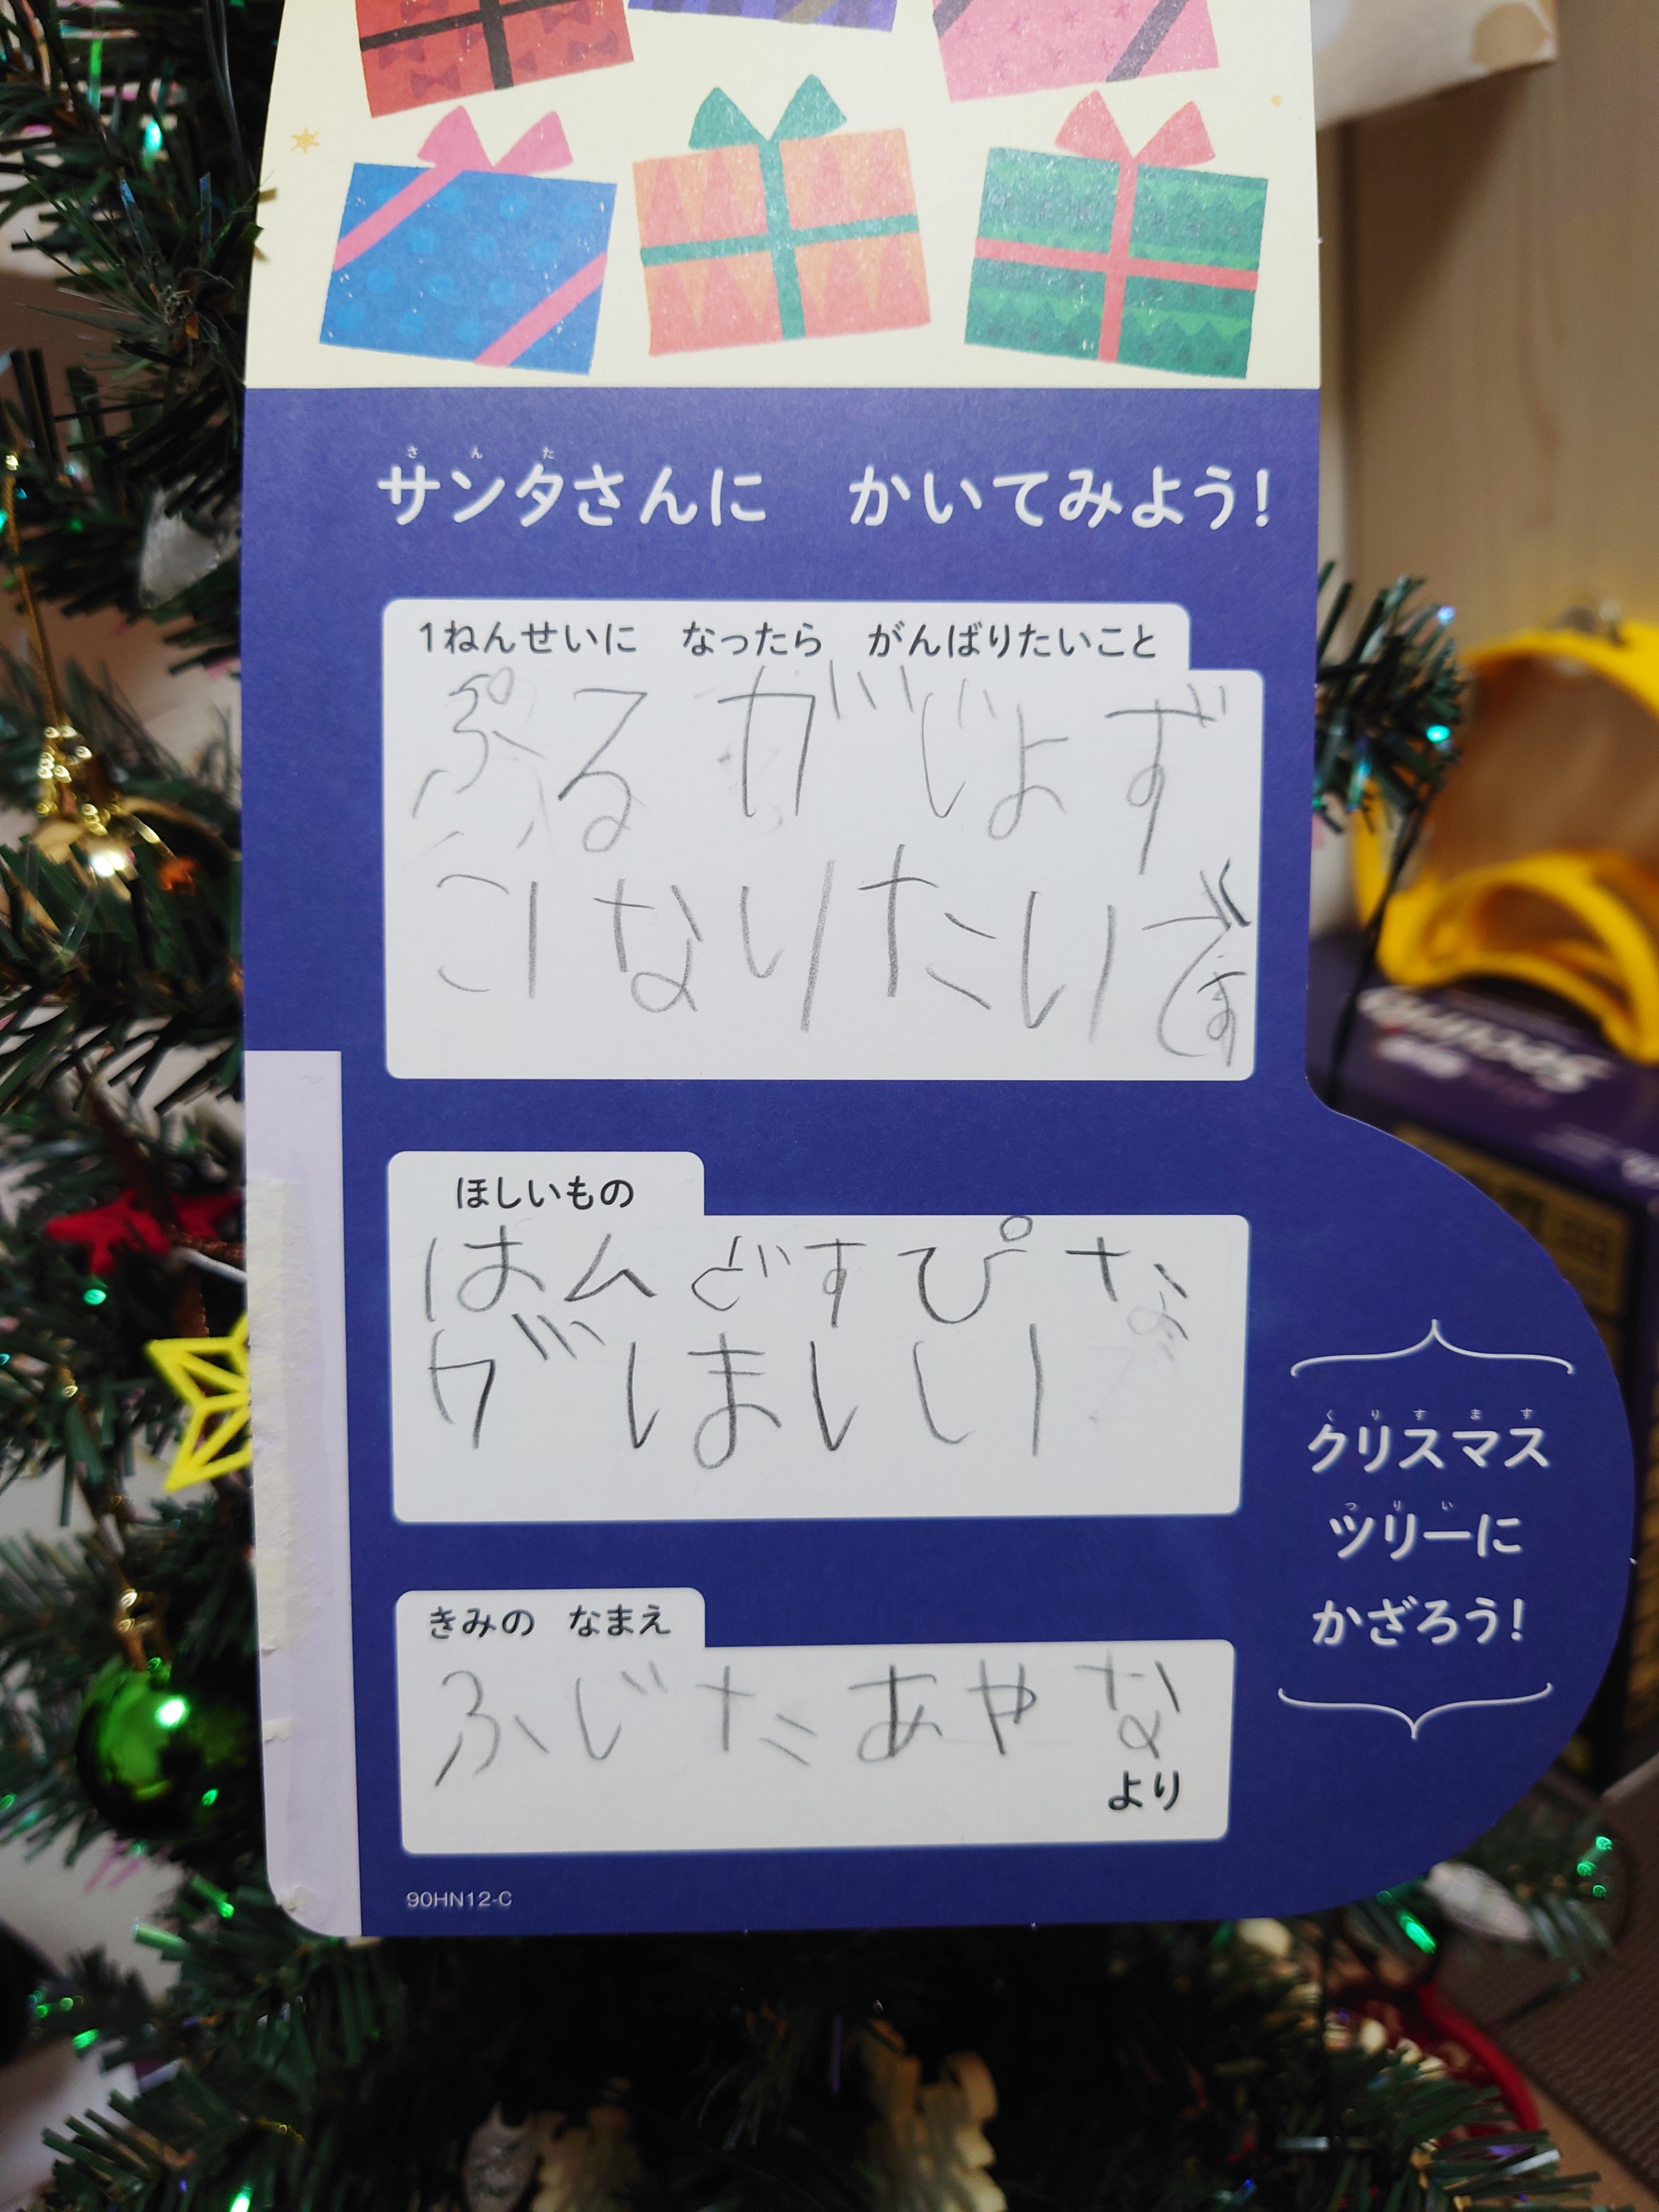 サンタさんに かいてみよう!
さんた
1ねんせいに なったら がんばりたいこと
ぷるがじょず
になりたいです
ほしいもの
はムどすぴな
がほしい
きみの なまえ
ふじたあやな
より
クリスマス
くりすます
ツリーに
つりい
かざろう!
90HN12-C